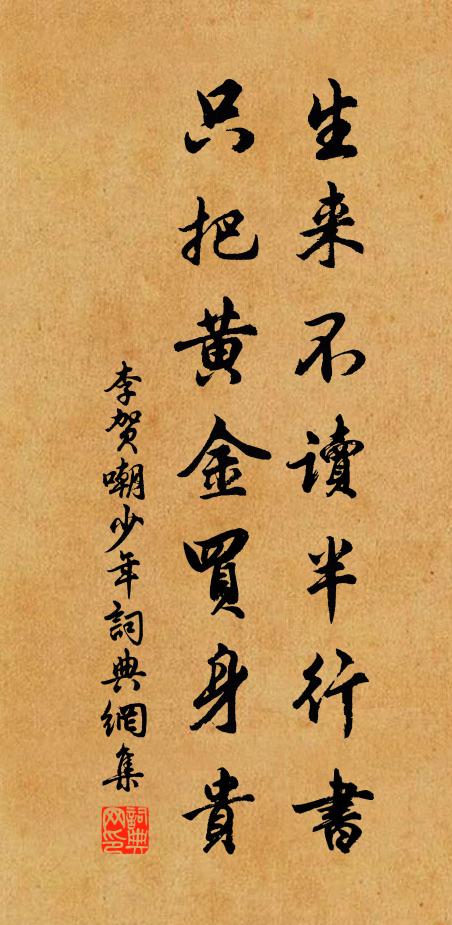 生来不讀半行書
只把黄金買身貴
李贺嘲少年詞典網集
詞典网印